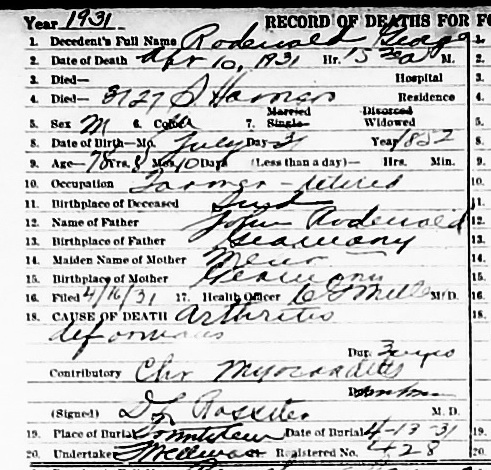 Year 1931 RECORD OF DEATHS FOR FO
1. Decedent's Full Name Rodewald George
2. Date of Death Apr 10, 1931 Hr. M.
3. Died— Hospital
4. Died— 3727 S Residence
5. Sex M 6. Color W 7. Married Single Divorced Widowed
8. Date of Birth—Mo. July Day Year 1852
9. Age—78 Yrs. 8 Mos. 10 Days (Less than a day)— Hrs. Min.
10. Occupation Farmer - retired
11. Birthplace of Deceased Ind
12. Name of Father John Rodewald
13. Birthplace of Father Germany
14. Maiden Name of Mother
15. Birthplace of Mother Germany
16. Filed 4/16/31 17. Health Officer M.D.
18. CAUSE OF DEATH Arthritis
deformans
Dur. 3 yrs
Contributory Chr Myocarditis
(Signed) M. D.
19. Place of Burial Date of Burial 4-13-31
20. Undertaker Registered No. 428